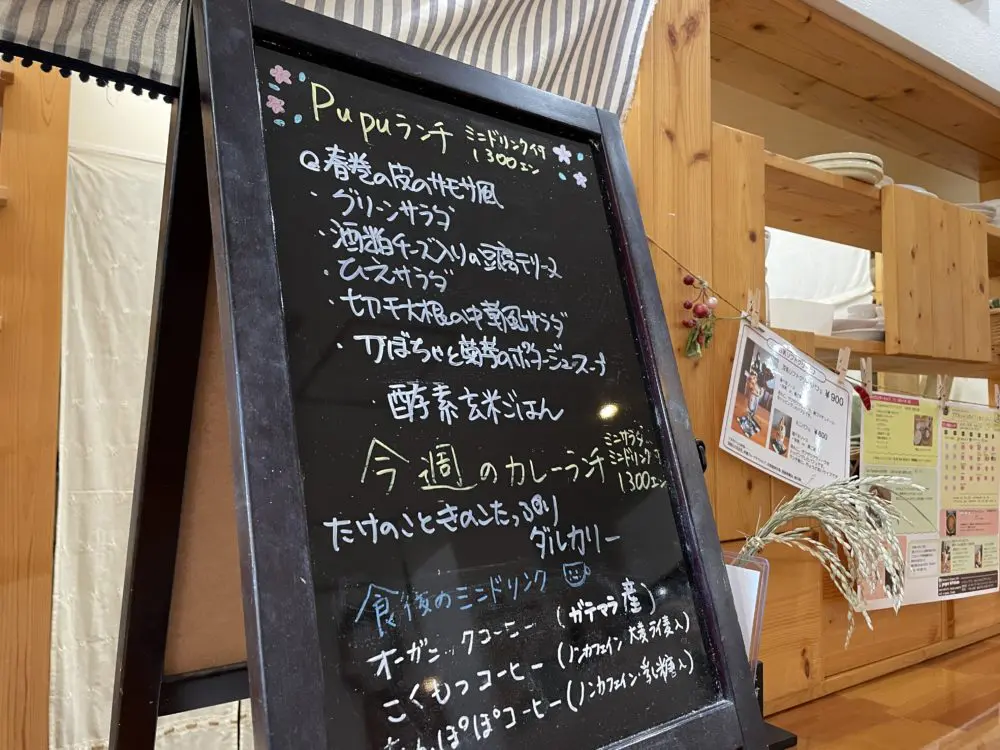 Pupuランチ ミニドリンク付
1300エン
春巻の皮のサモサ風
・グリーンサラダ
・酒粕チーズ入りの豆腐テリーヌ
・ひえサラダ
・切干大根の中華風サラダ
・かぼちゃと菊芋のポタージュスープ
・酵素玄米ごはん
今週のカレーランチ
ミニサラダ
ミニドリンク付
1300エン
たけのこときのこたっぷり
ダルカリー
食後のミニドリンク
オーガニックコーヒー (ガテマラ産)
こくもつコーヒー (ノンカフェイン 大麦ライ麦入)
たんぽぽコーヒー (ノンカフェイン・乳糖入)
¥900
¥800